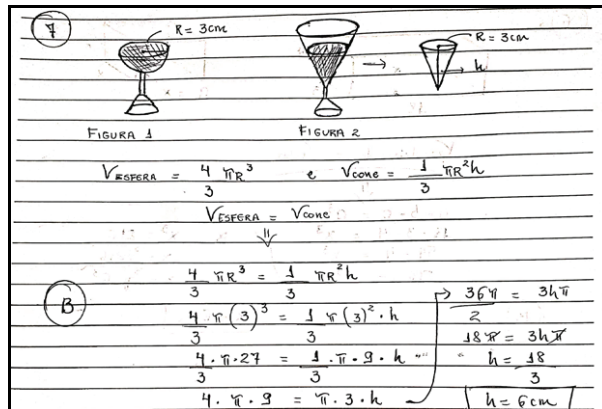 7
R = 3cm
R = 3cm
h
FIGURA 1
FIGURA 2
VESFERA = 4/3 πR³ e Vcone = 1/3 πR²h
VESFERA = Vcone
4/3 πR³ = 1/3 πR²h
B
4/3 π(3)³ = 1/3 π(3)²·h
4/3·π·27 = 1/3·π·9·h
4·π·9 = π·3·h
36π/2 = 3hπ
18π = 3hπ
h = 18/3
h = 6cm